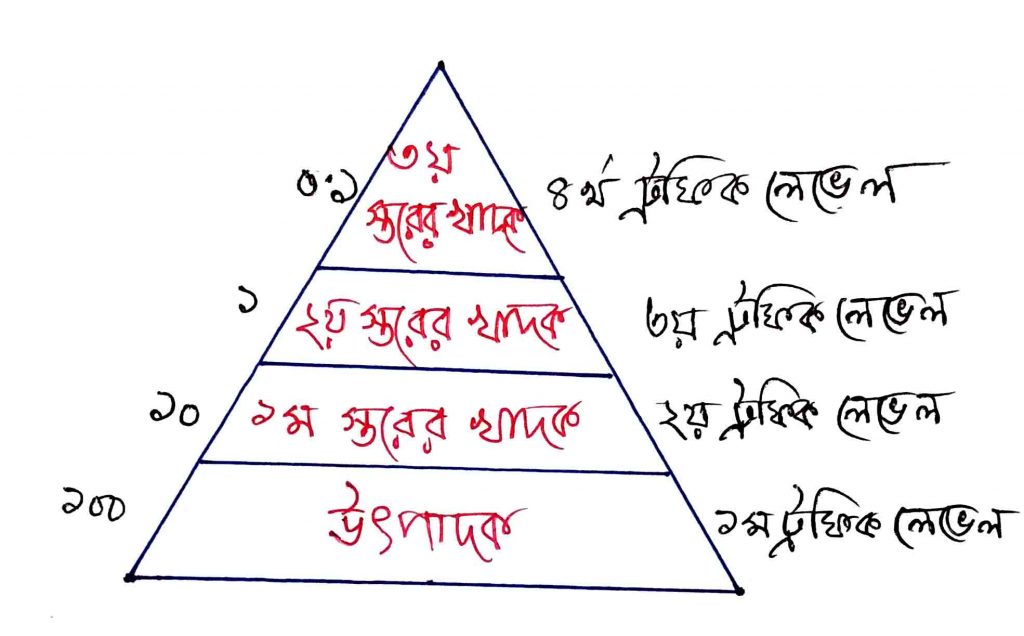 ৩য়
০.১ স্তরের খাদক ৪র্থ ট্রফিক লেভেল
১ ২য় স্তরের খাদক ৩য় ট্রফিক লেভেল
১০ ১ম স্তরের খাদক ২য় ট্রফিক লেভেল
১০০ উৎপাদক ১ম ট্রফিক লেভেল